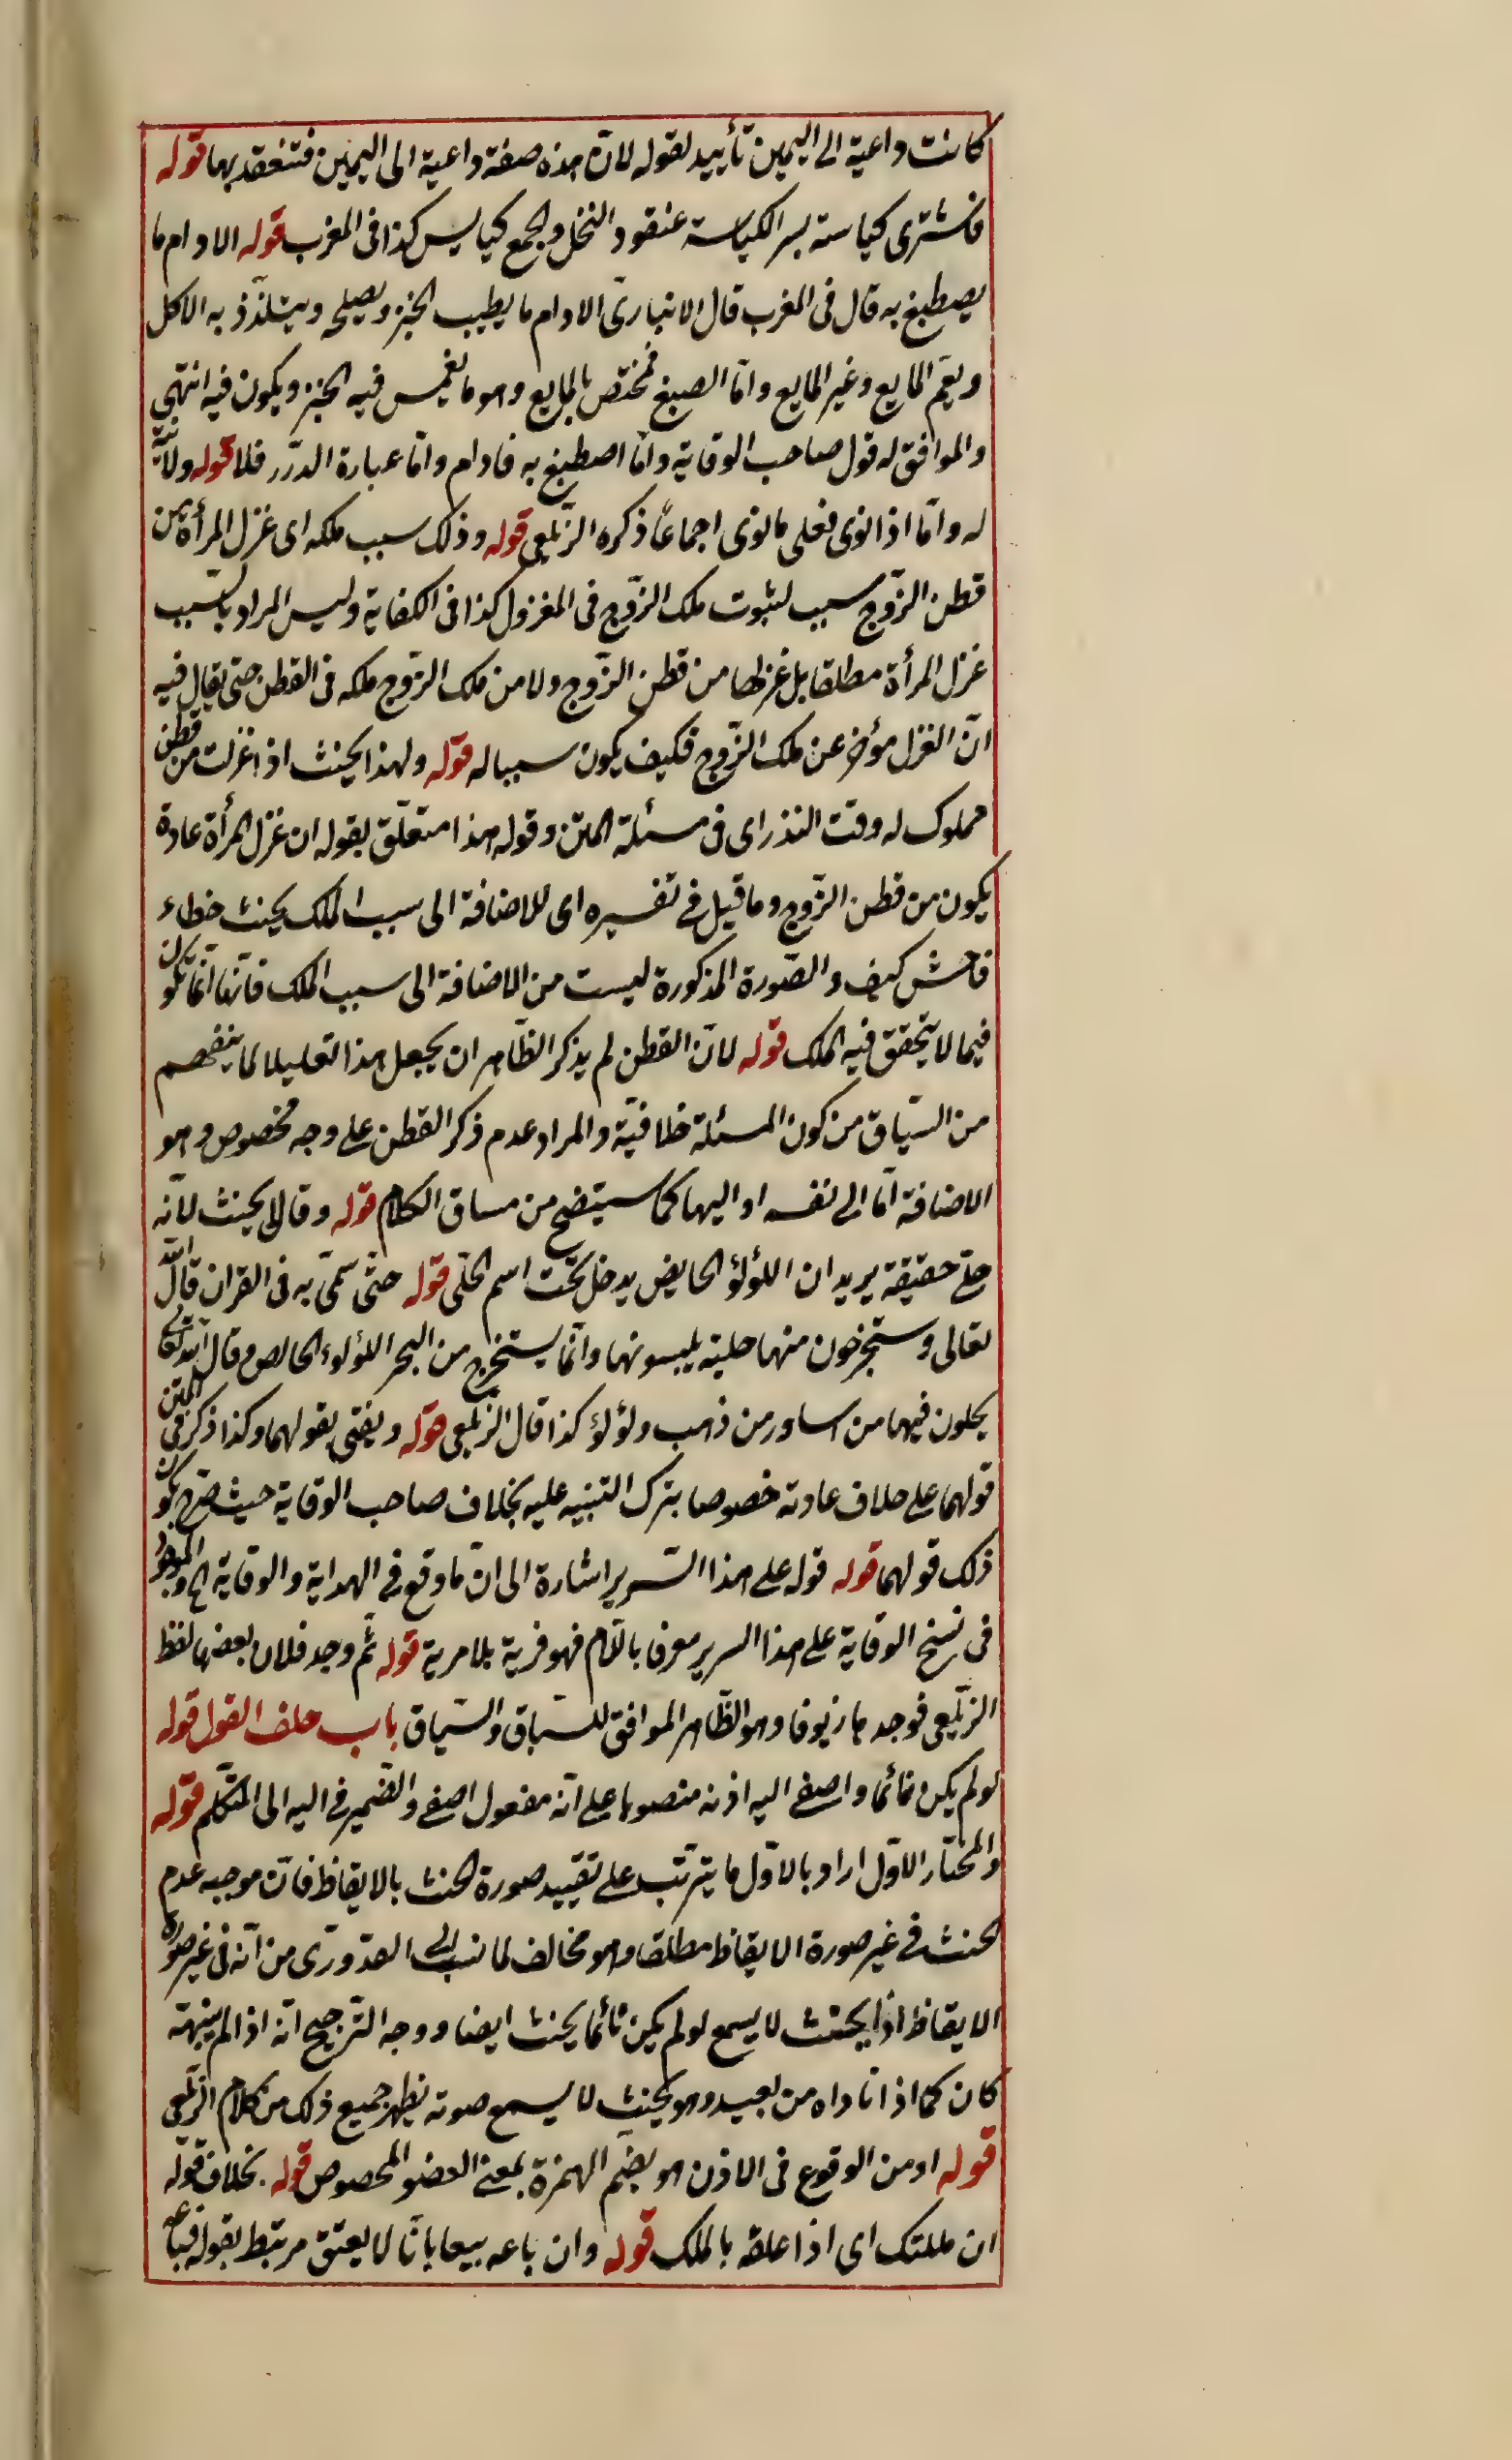 كانت داعية الى اليمين تأييد لقوله لان هذه صفة داعية الى اليمين فتنعقد بها قوله
فاشترى كباسة بسر الكباسة عنقود النخل والجمع كبايس كذا فى المغرب قوله الادام ما
يصطبغ به قال فى المغرب قال الانبارى الادام ما يطيب الخبز ويصلحه ويتلذذ به الاكل
ويعم المايع وغير المايع وامّا الصبغ فمختص بالمايع وهو ما يغمس فيه الخبز ويكون فيه انتهى
والموافق له قول صاحب الوقاية وامّا اصطبغ به فادام وامّا عبارة الدرر فلا قوله ولا نيّة
له وامّا اذا نوى فعلى ما نوى اجماعًا ذكره الزيلعى قوله وذلك سبب ملكه اى غزل المرأة من
قطن الزّوج سبب لثبوت ملك الزّوج فى المغزول كذا فى الكفاية وليس المراد بالسّبب
غزل المرأة مطلقا بل غزلها من قطن الزّوج ولا من ملك الزّوج ملكه فى القطن حتى يقال فيه
انّ الغزل مؤخر عن ملك الزّوج فكيف يكون سببا له قوله ولهذا يحنث اذا غزلت من قطن
مملوك له وقت النذر اى فى مسئلة المتن وقوله هذا متعلّق بقوله ان غزل المرأة عادة
يكون من قطن الزّوج وما قيل فى تفسيره اى للاضافة الى سبب الملك يحنث خطاء
فاحش كيف والصّورة المذكورة ليست من الاضافة الى سبب الملك فانّها انّما تكون
فيما لا يتحقق فيه الملك قوله لانّ القطن لم يذكر الظّاهر ان يجعل هذا تعليلا لما ينفهم
من السّياق من كون المسئلة خلافيّة والمراد عدم ذكر القطن على وجه مخصوص وهو
الاضافة امّا الى نفسه او اليها كما سيتضح من مساق الكلام قوله وقالا يحنث لانّه
حلى حقيقة يريد ان اللؤلؤ الخالص يدخل تحت اسم الحلى قوله حتّى سمّى به فى القران قال الله
تعالى وتستخرجون منها حلية يلبسونها وانّما يستخرج من البحر اللؤلوء الخالص وقال الله تعا
يحلون فيها من اساور من ذهب ولؤلؤ كذا قال الزيلعى قوله ويفتى بقولهما وكذا ذكر فى المتن
قولهما على خلاف عادته خصوصا بترك التنبيه عليه بخلاف صاحب الوقاية حيث صرّح بكون
ذلك قولهما قوله قوله على هذا السّرير اشارة الى انّ ما وقع فى الهداية والوقاية الخ والموجود
فى نسخ الوقاية على هذا السرير معرفا باللّام فهو فرية بلا مرية قوله ثم وجد فلان بعضها لفظ
الزيلعى فوجد بها زيوفا وهو الظّاهر الموافق للسّباق والسّياق باب حلف القول قوله
لو لم يكن نائما واصغى اليه اذنه منصوبا على انّه مفعول اصغى والضّمير فى اليه الى المتكلّم قوله
والمختار الاوّل اراد بالاوّل ما يترتّب على تقييد صورة الحنث بالايقاظ فانّ موجبه عدم
الحنث فى غير صورة الايقاظ مطلقا وهو مخالف لما نسب الى القدّورىّ من انّه فى غير صورة
الايقاظ اذا يحنث لا يسمع لو لم يكن نائما يحنث ايضا ووجه التّرجيح انّه اذا لم ينبهه
كان كما اذا ناداه من بعيد وهو بحيث لا يسمع صوته يظهر جميع ذلك من كلام الزّيلعى
قوله او من الوقوع فى الاذن هو بضم الهمزة بمعنى العضو المخصوص قوله بخلاف قوله
ان ملكتك اى اذا علقه بالملك قوله وان باعه بيعا باتّا لا يعتق مرتبط بقوله فباعه